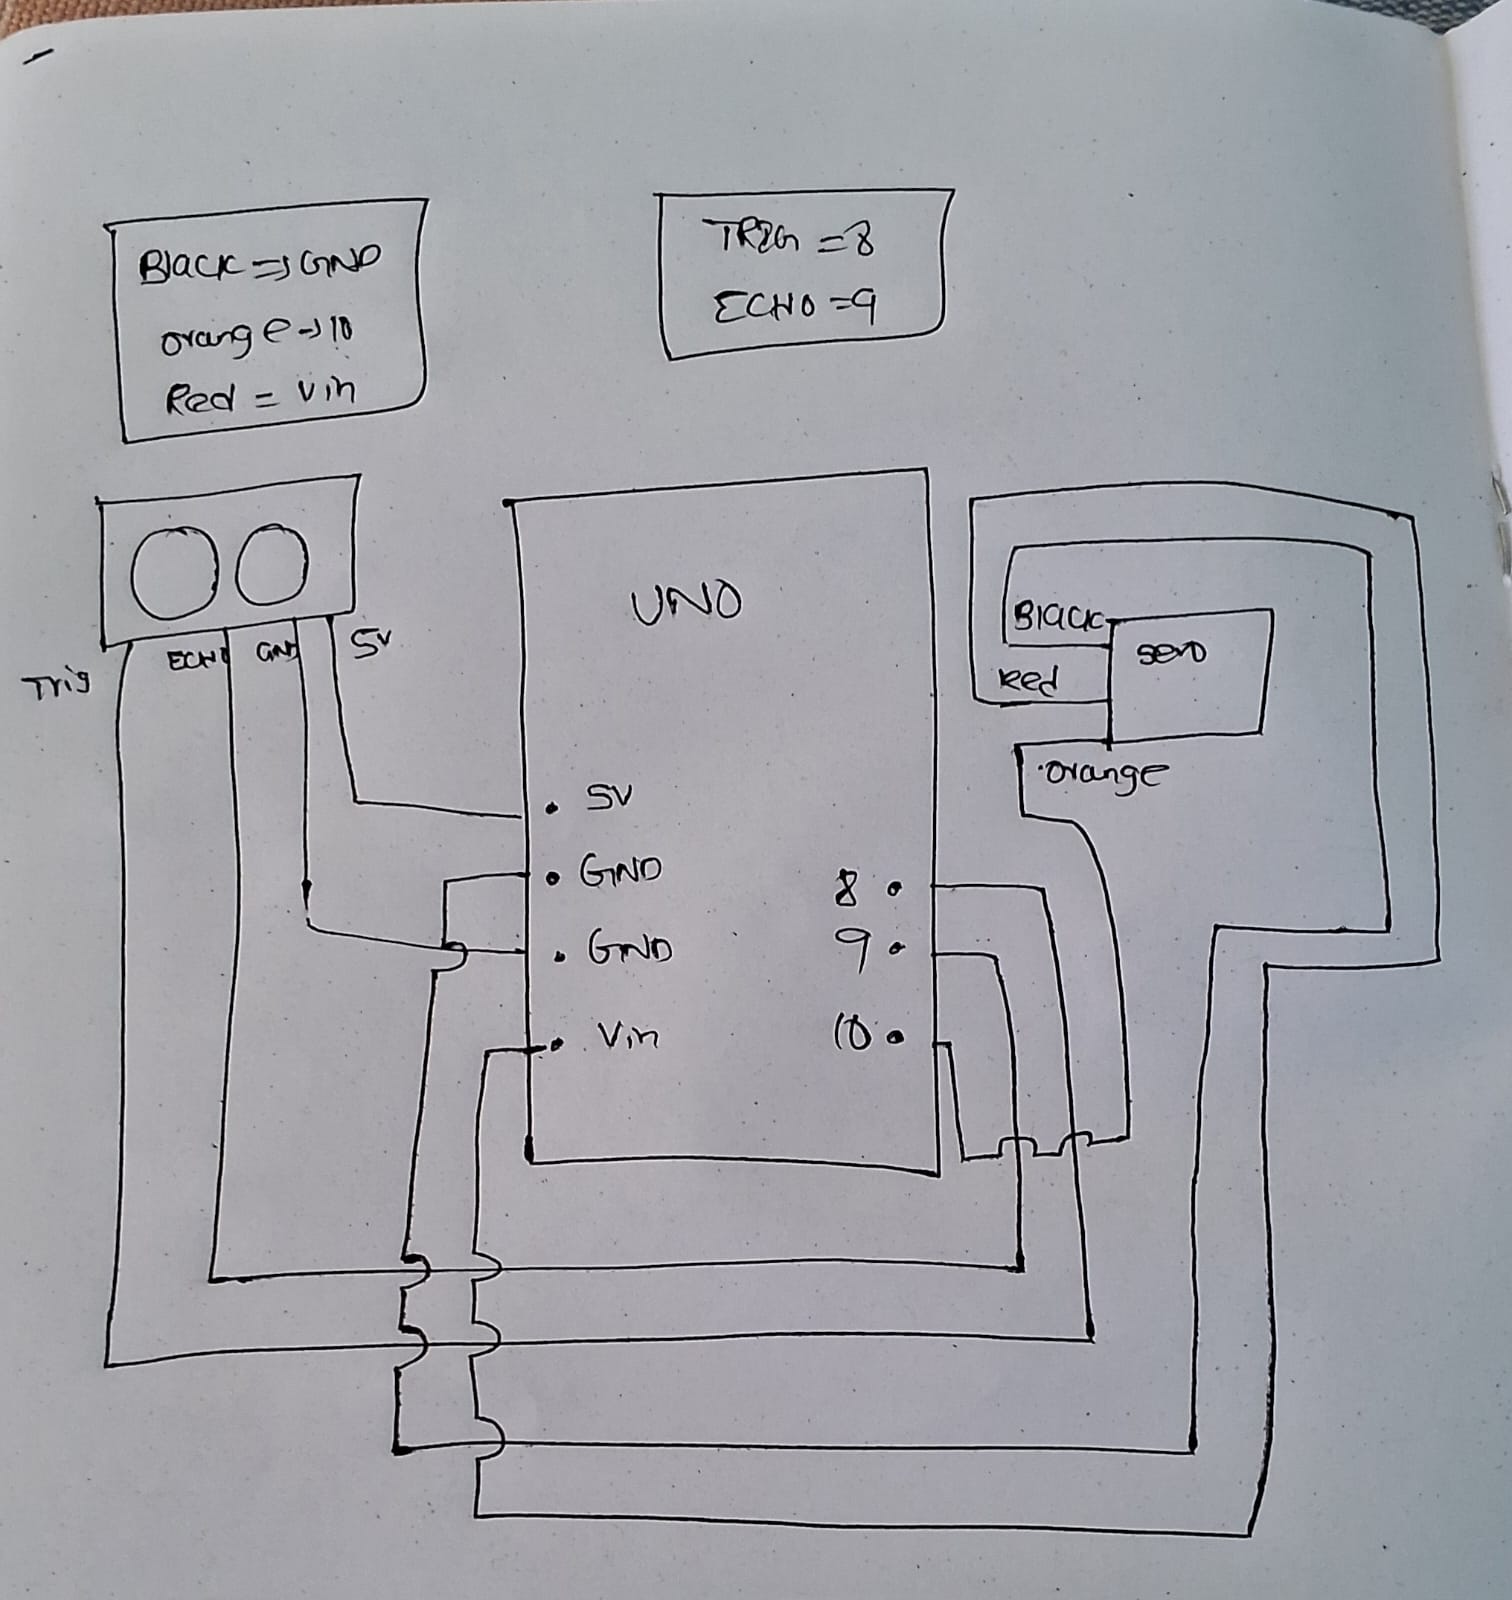 Black => GND
orange -> 10
Red = Vin
TRIG = 8
ECHO = 9
Trig
ECHO
GND
5V
UNO
5V
GND
GND
Vin
8
9
10
Black
Red
servo
orange